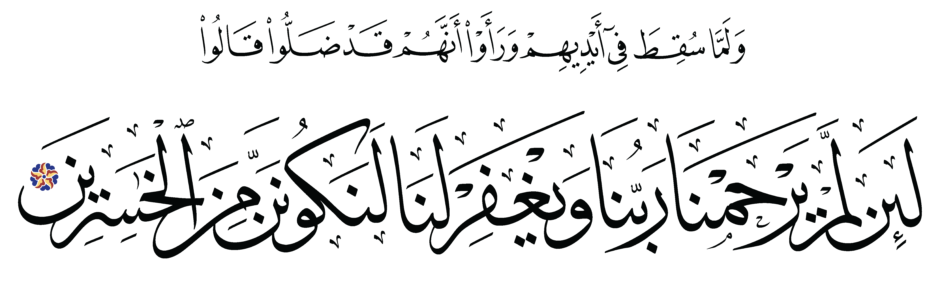 وَلَمَّا سُقِطَ فِيٓ أَيْدِيهِمْ وَرَأَوْا۟ أَنَّهُمْ قَدْ ضَلُّوا۟ قَالُوا۟
لَئِن لَّمْ يَرْحَمْنَا رَبُّنَا وَيَغْفِرْ لَنَا لَنَكُونَنَّ مِنَ ٱلْخَٰسِرِينَ